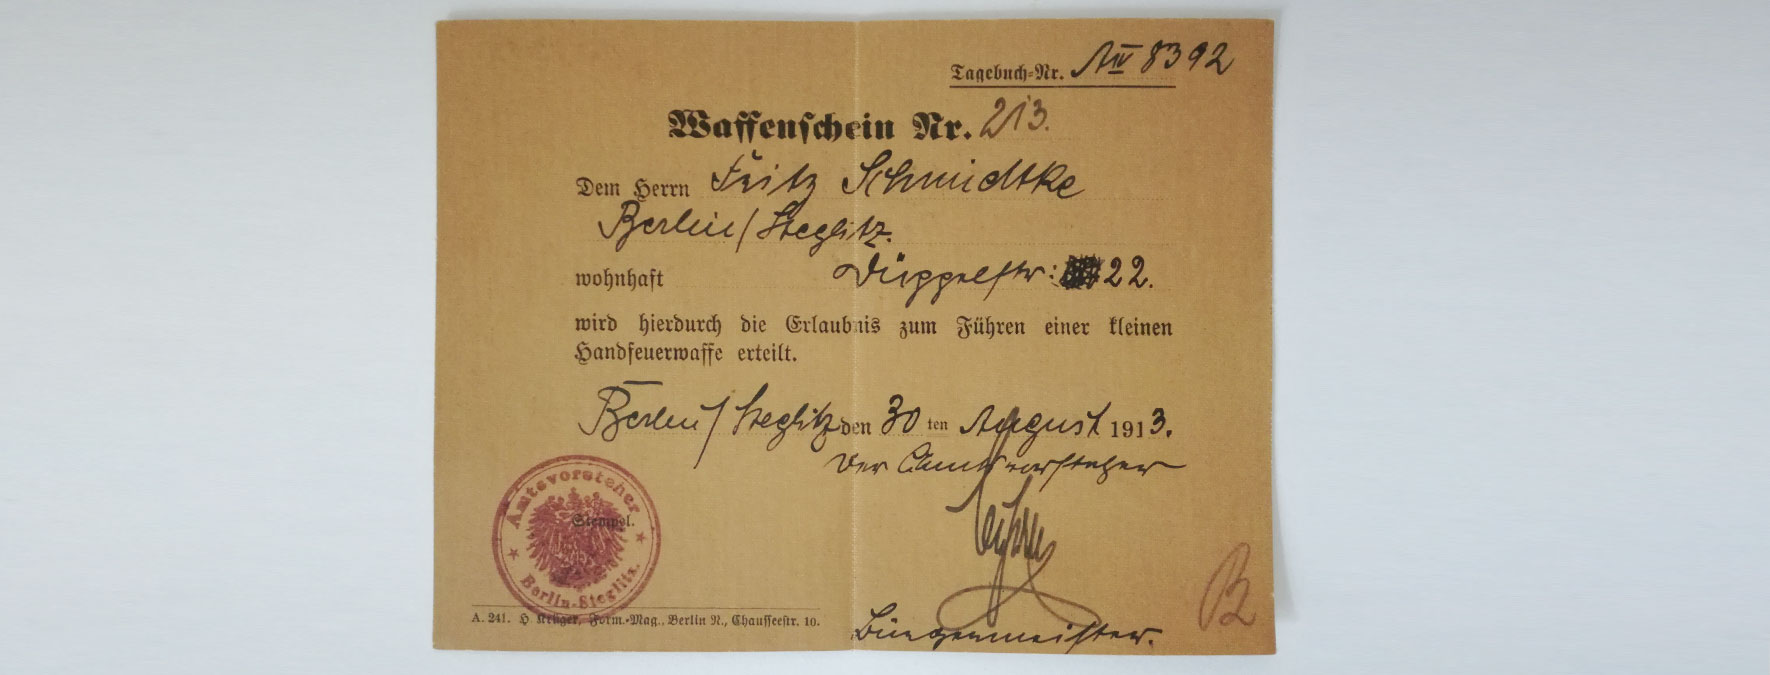 Tagebuch-Nr. A IV 8392
Waffenschein Nr. 213.
Dem Herrn Fritz Schmidtke
Berlin/Steglitz.
wohnhaft Düppelstr: 22.
wird hierdurch die Erlaubnis zum Führen einer kleinen
Handfeuerwaffe erteilt.
Berlin/Steglitz den 30 ten August 1913.
Der Amtsvorsteher
Amtsvorsteher
Stempel.
Berlin-Steglitz.
Bürgermeister.
A. 241. H. Krüger, Form.-Mag., Berlin N., Chausseestr. 10.
B